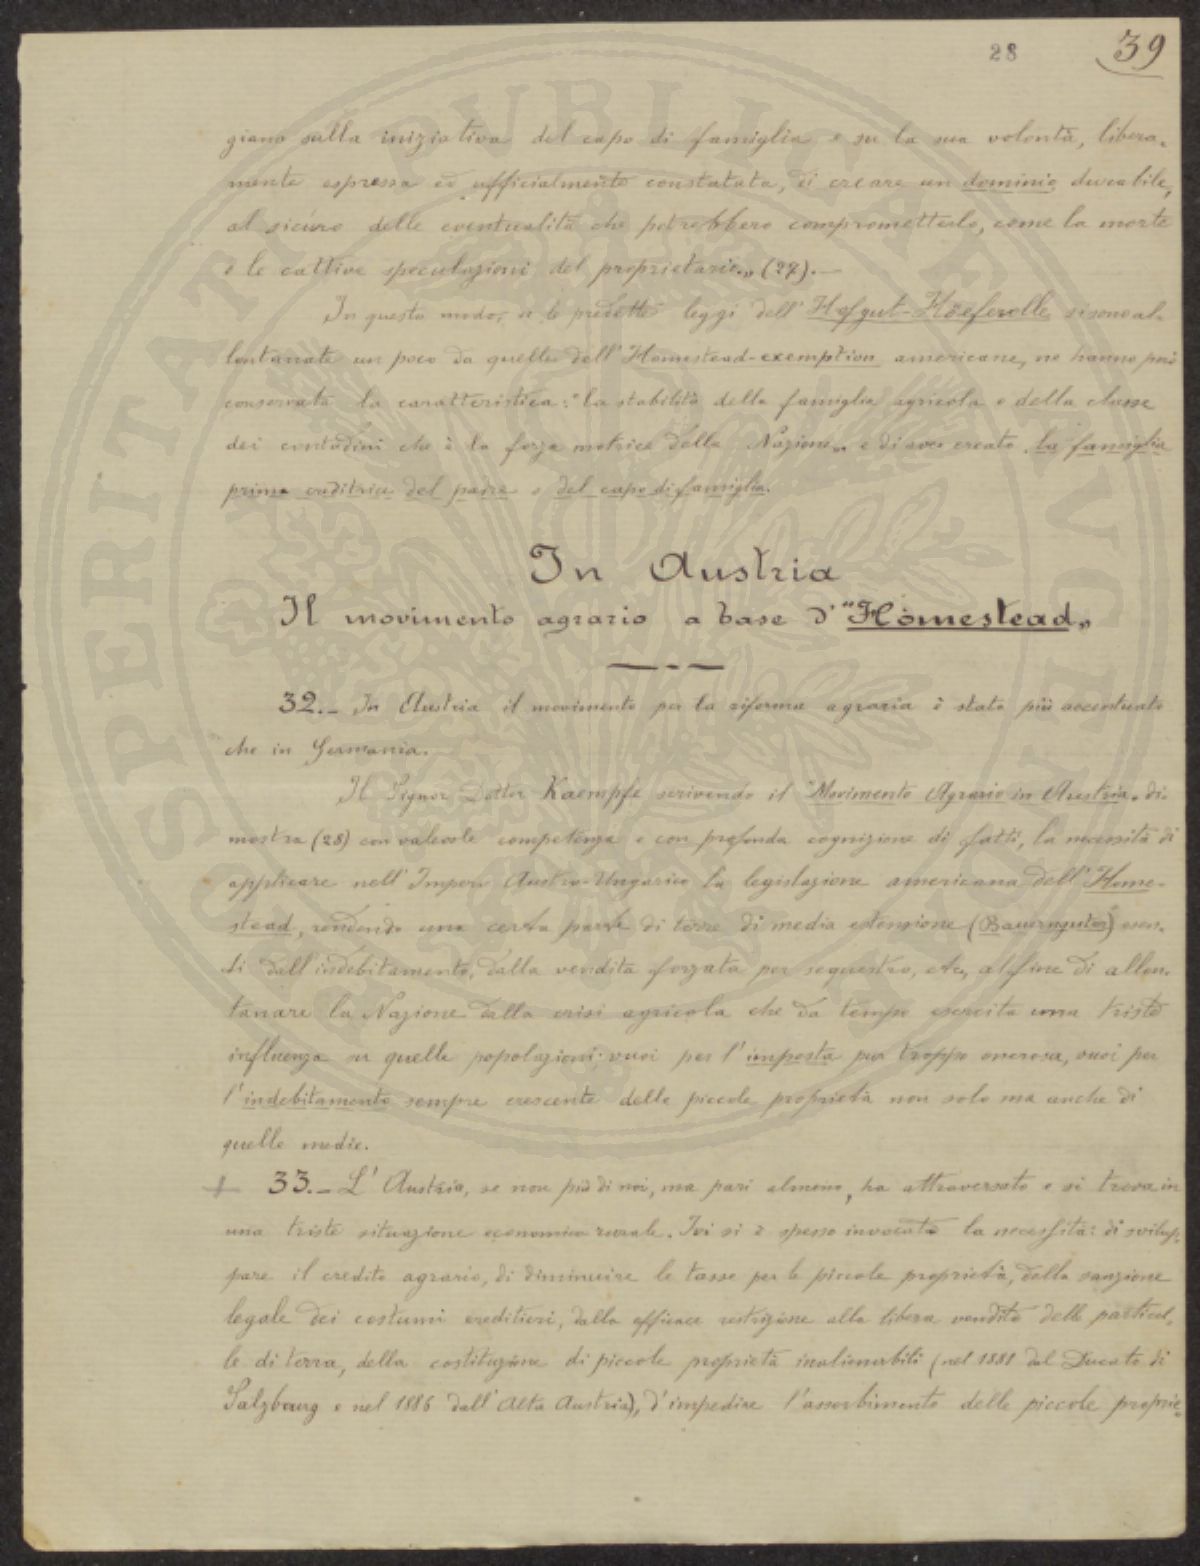 28 39
giano sulla iniziativa del capo di famiglia e su la sua volontà, libera-
mente espressa ed ufficialmente constatata, di creare un dominio durabile,
al sicuro delle eventualità che potrebbero comprometterlo, come la morte
o le cattive speculazioni del proprietario„ (27).—
In questo modo, se le predette leggi dell' Hofgut-Höeferolle si sono al-
lontanate un poco da quelle dell' Homestead-exemption americane, ne hanno però
conservata la caratteristica: "la stabilità della famiglia agricola e della classe
dei contadini che è la forza motrice della Nazione„ e di aver creato la famiglia
prima ereditria del padre e del capo di famiglia.
In Austria
Il movimento agrario a base d' "Homestead„
32.— In Austria il movimento per la riforma agraria è stato più accentuato
che in Germania.
Il Signor Dottor Kaempfe scrivendo il "Movimento Agrario in Austria„ di-
mostra (28) con valevole competenza e con profonda cognizione di fatti, la necessità di
applicare nell' Impero Austro-Ungarico la legislazione americana dell' Home-
stead, rendendo una certa parte di terre di media estensione (Bauerngüter) esen-
ti dall'indebitamento, dalla vendita forzata per sequestro, etc, al fine di allon-
tanare la Nazione dalla crisi agricola che da tempo esercita una triste
influenza su quelle popolazioni: vuoi per l'imposta pur troppo onerosa, vuoi per
l'indebitamento sempre crescente delle piccole proprietà non solo ma anche di
quelle medie.
+ 33.— L' Austria, se non più di noi, ma pari almeno, ha attraversato e si trova in
una triste situazione economica rurale. Ivi si è spesso invocata la necessità: di svilup-
pare il credito agrario, di diminuire le tasse per le piccole proprietà, della sanzione
legale dei costumi ereditieri, dalla efficace restrizione alla libera vendita delle particel-
le di terra, della costituzione di piccole proprietà inalienabili (nel 1881 dal Ducato di
Salzbourg e nel 1886 dall' Alta Austria), d'impedire l'assorbimento delle piccole proprie-
SPERITATI PUBLICAE